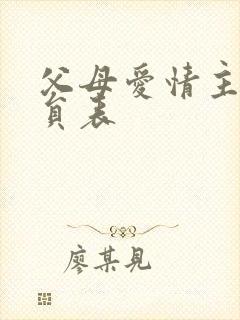 父母愛情主
員表
廖某見